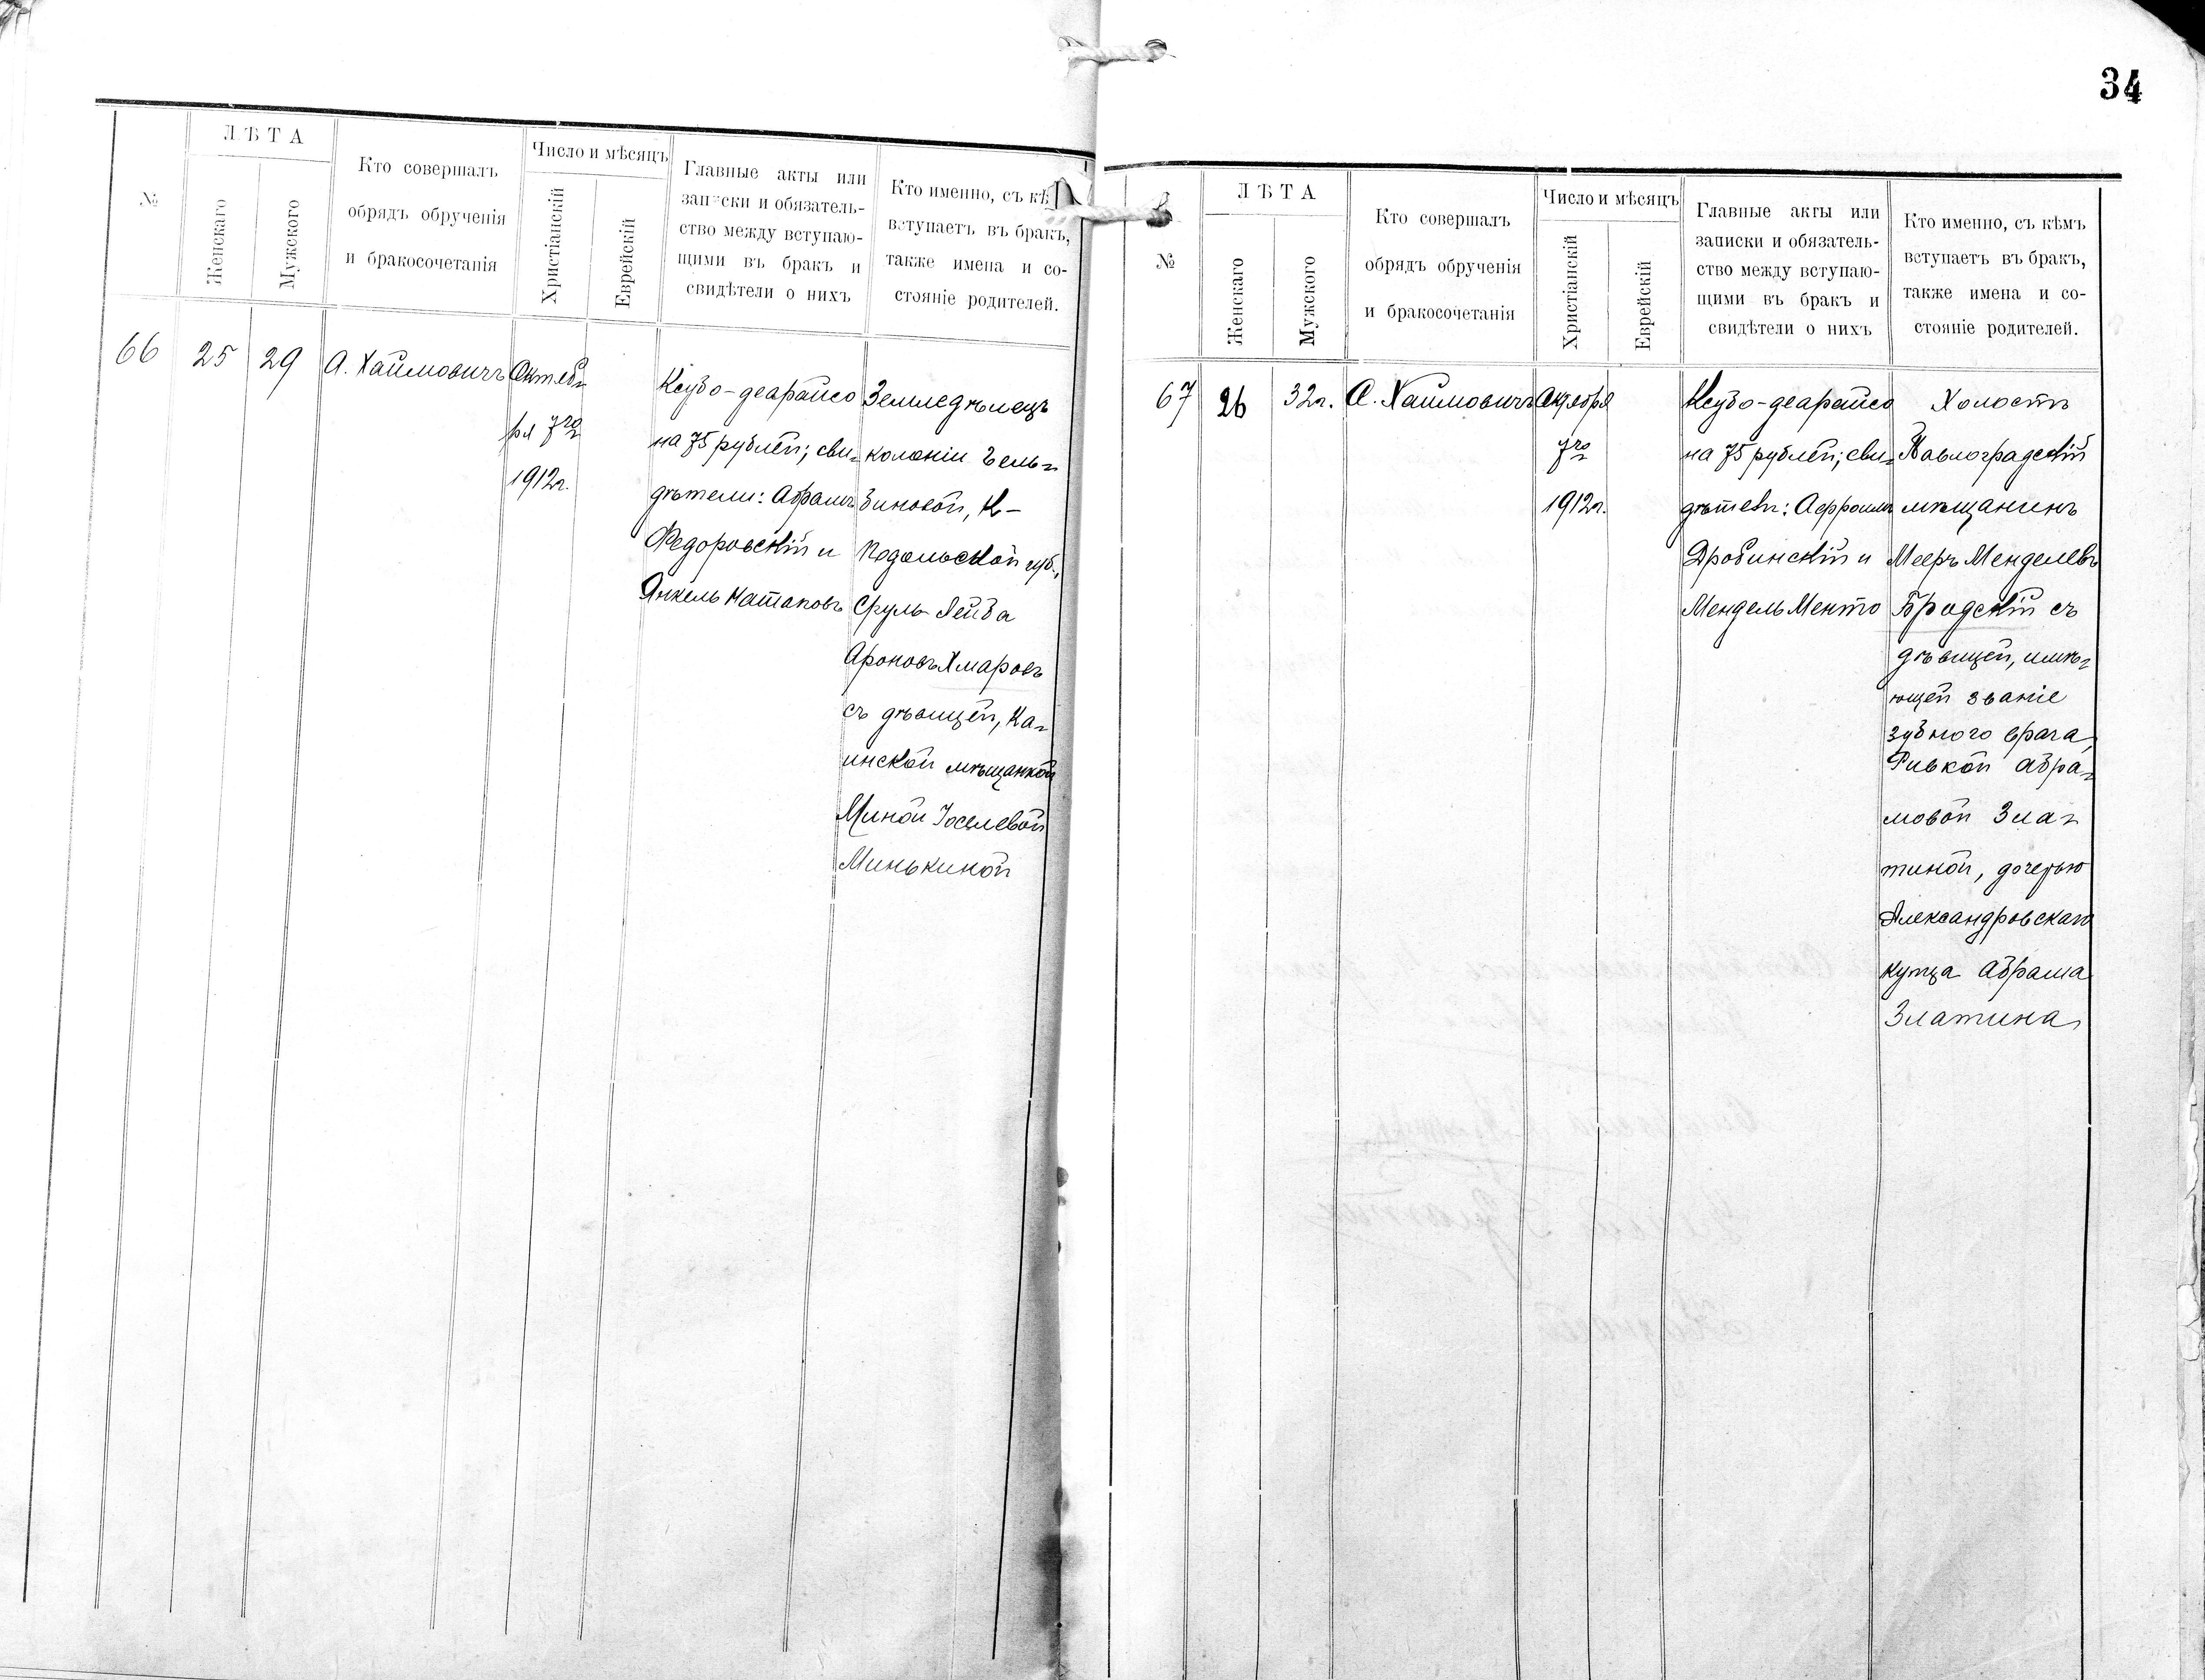 №
ЛѢТА
Женскаго
Мужского
Кто совершалъ
обрядъ обрученія
и бракосочетанія
Число и мѣсяцъ
Христіанскій
Еврейскій
Главные акты или
записки и обязатель-
ство между вступаю-
щими въ бракъ и
свидѣтели о нихъ
Кто именно, съ кѣ
вступаетъ въ бракъ,
также имена и со-
стояніе родителей.
66
25
29
А. Хаймовичъ
Октяб-
ря 7го
1912г.
Ксубо-деарайсо
на 75 рублей; сви-
дѣтели: Абрамъ
Федоровскій и
Янкель Натаповъ
Земледѣлецъ
колоніи
К-
Подольской губ.,
Сруль-Лейба
Ароновъ Хмаровъ
съ дѣвицей, Ка-
инской мѣщанкой
Миной Іоселевой
Минькиной
34
№
ЛѢТА
Женскаго
Мужского
Кто совершалъ
обрядъ обрученія
и бракосочетанія
Число и мѣсяцъ
Христіанскій
Еврейскій
Главные акты или
записки и обязатель-
ство между вступаю-
щими въ бракъ и
свидѣтели о нихъ
Кто именно, съ кѣмъ
вступаетъ въ бракъ,
также имена и со-
стояніе родителей.
67
26
32г.
А. Хаймовичъ
7го
1912г.
Ксубо-деарайсо
на 75 рублей; сви-
Дробинскій и
Мендель Менто
Холостъ
Павлоградскій
мѣщанинъ
Мееръ Менделевъ
Бродскій съ
дѣвицей, имѣ-
ющей званіе
зубного врача,
Ривкой Абра-
мовой Зла-
тиной, дочерью
Александровскаго
купца Абрама
Златина